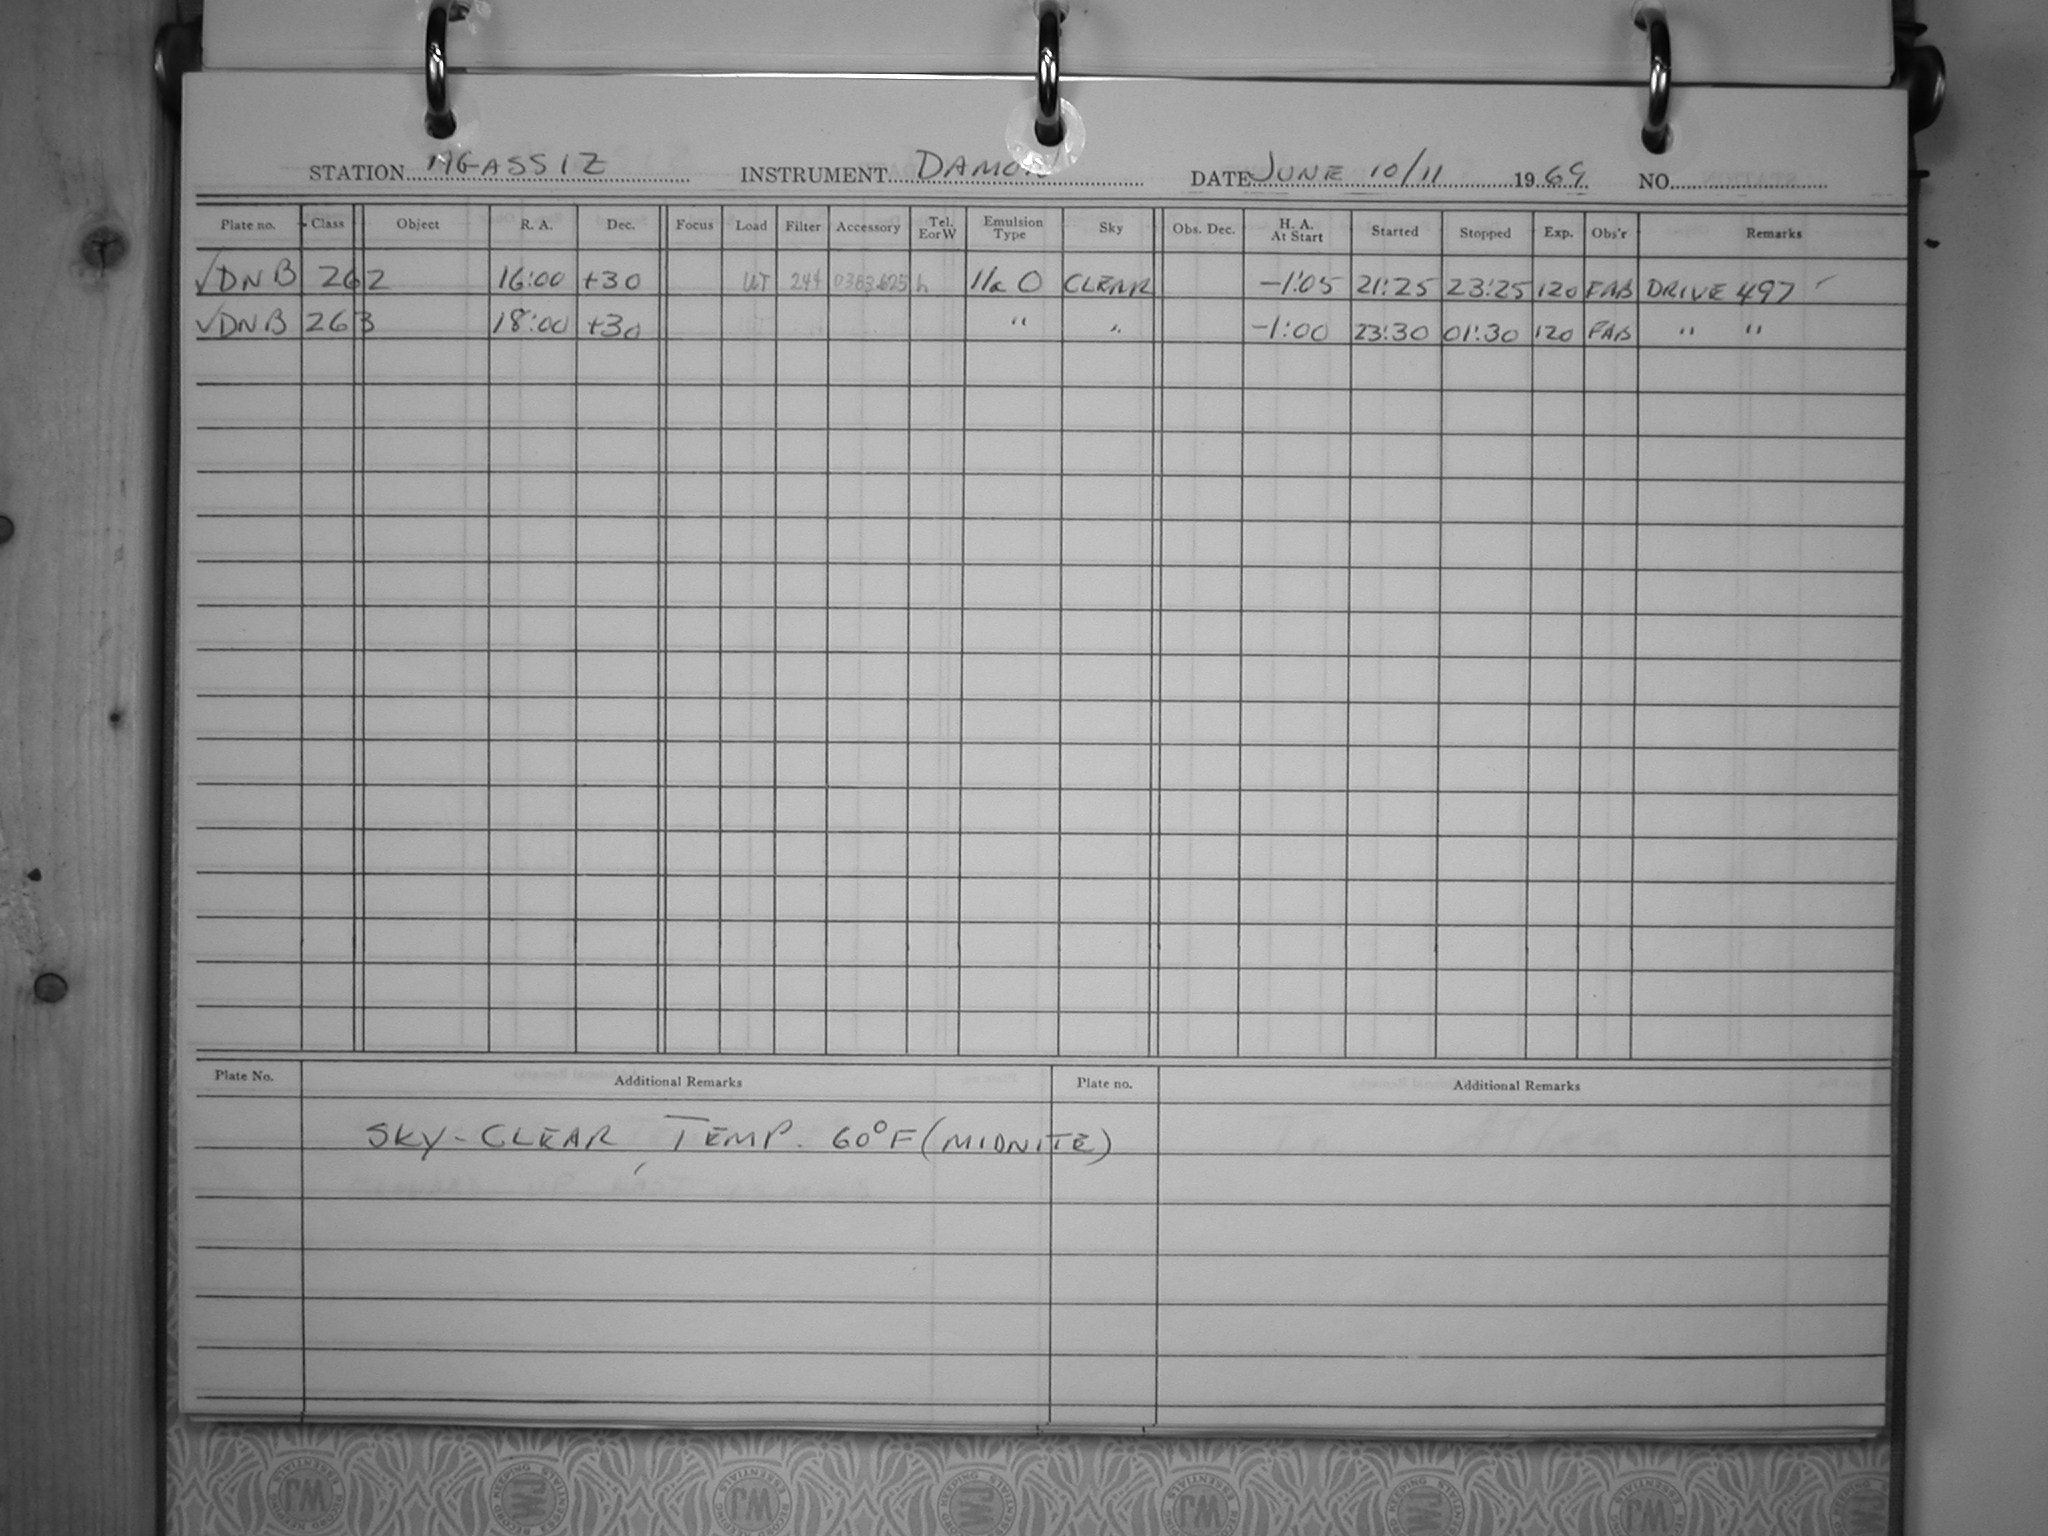 STATION AGASSIZ INSTRUMENT DAMON DATE JUNE 10/11 1969 NO.
Plate no. Class Object R. A. Dec. Focus Load Filter Accessory Tel. E or W Emulsion Type Sky Obs. Dec. H. A. At Start Started Stopped Exp. Obs'r Remarks
√DNB 262 16:00 +30 IIa O CLEAR -1:05 21:25 23:25 120 FAB DRIVE 497
√DNB 263 18:00 +30 " " -1:00 23:30 01:30 120 FAB " "
Plate No. Additional Remarks Plate no. Additional Remarks
SKY-CLEAR, TEMP. 60°F (MIDNITE)
RECORD KEEPING WJ ESSENTIALS